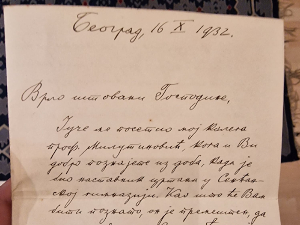 Београд, 16 X 1932.
Врло поштовани Господине,
Јуче ме посетио мој колега
проф. Милутиновић, кога и Ви
добро познајете из доба, када је
био наставник цртања у
ској гимназији. Као што ће Вам
бити познато, он је премештен, да